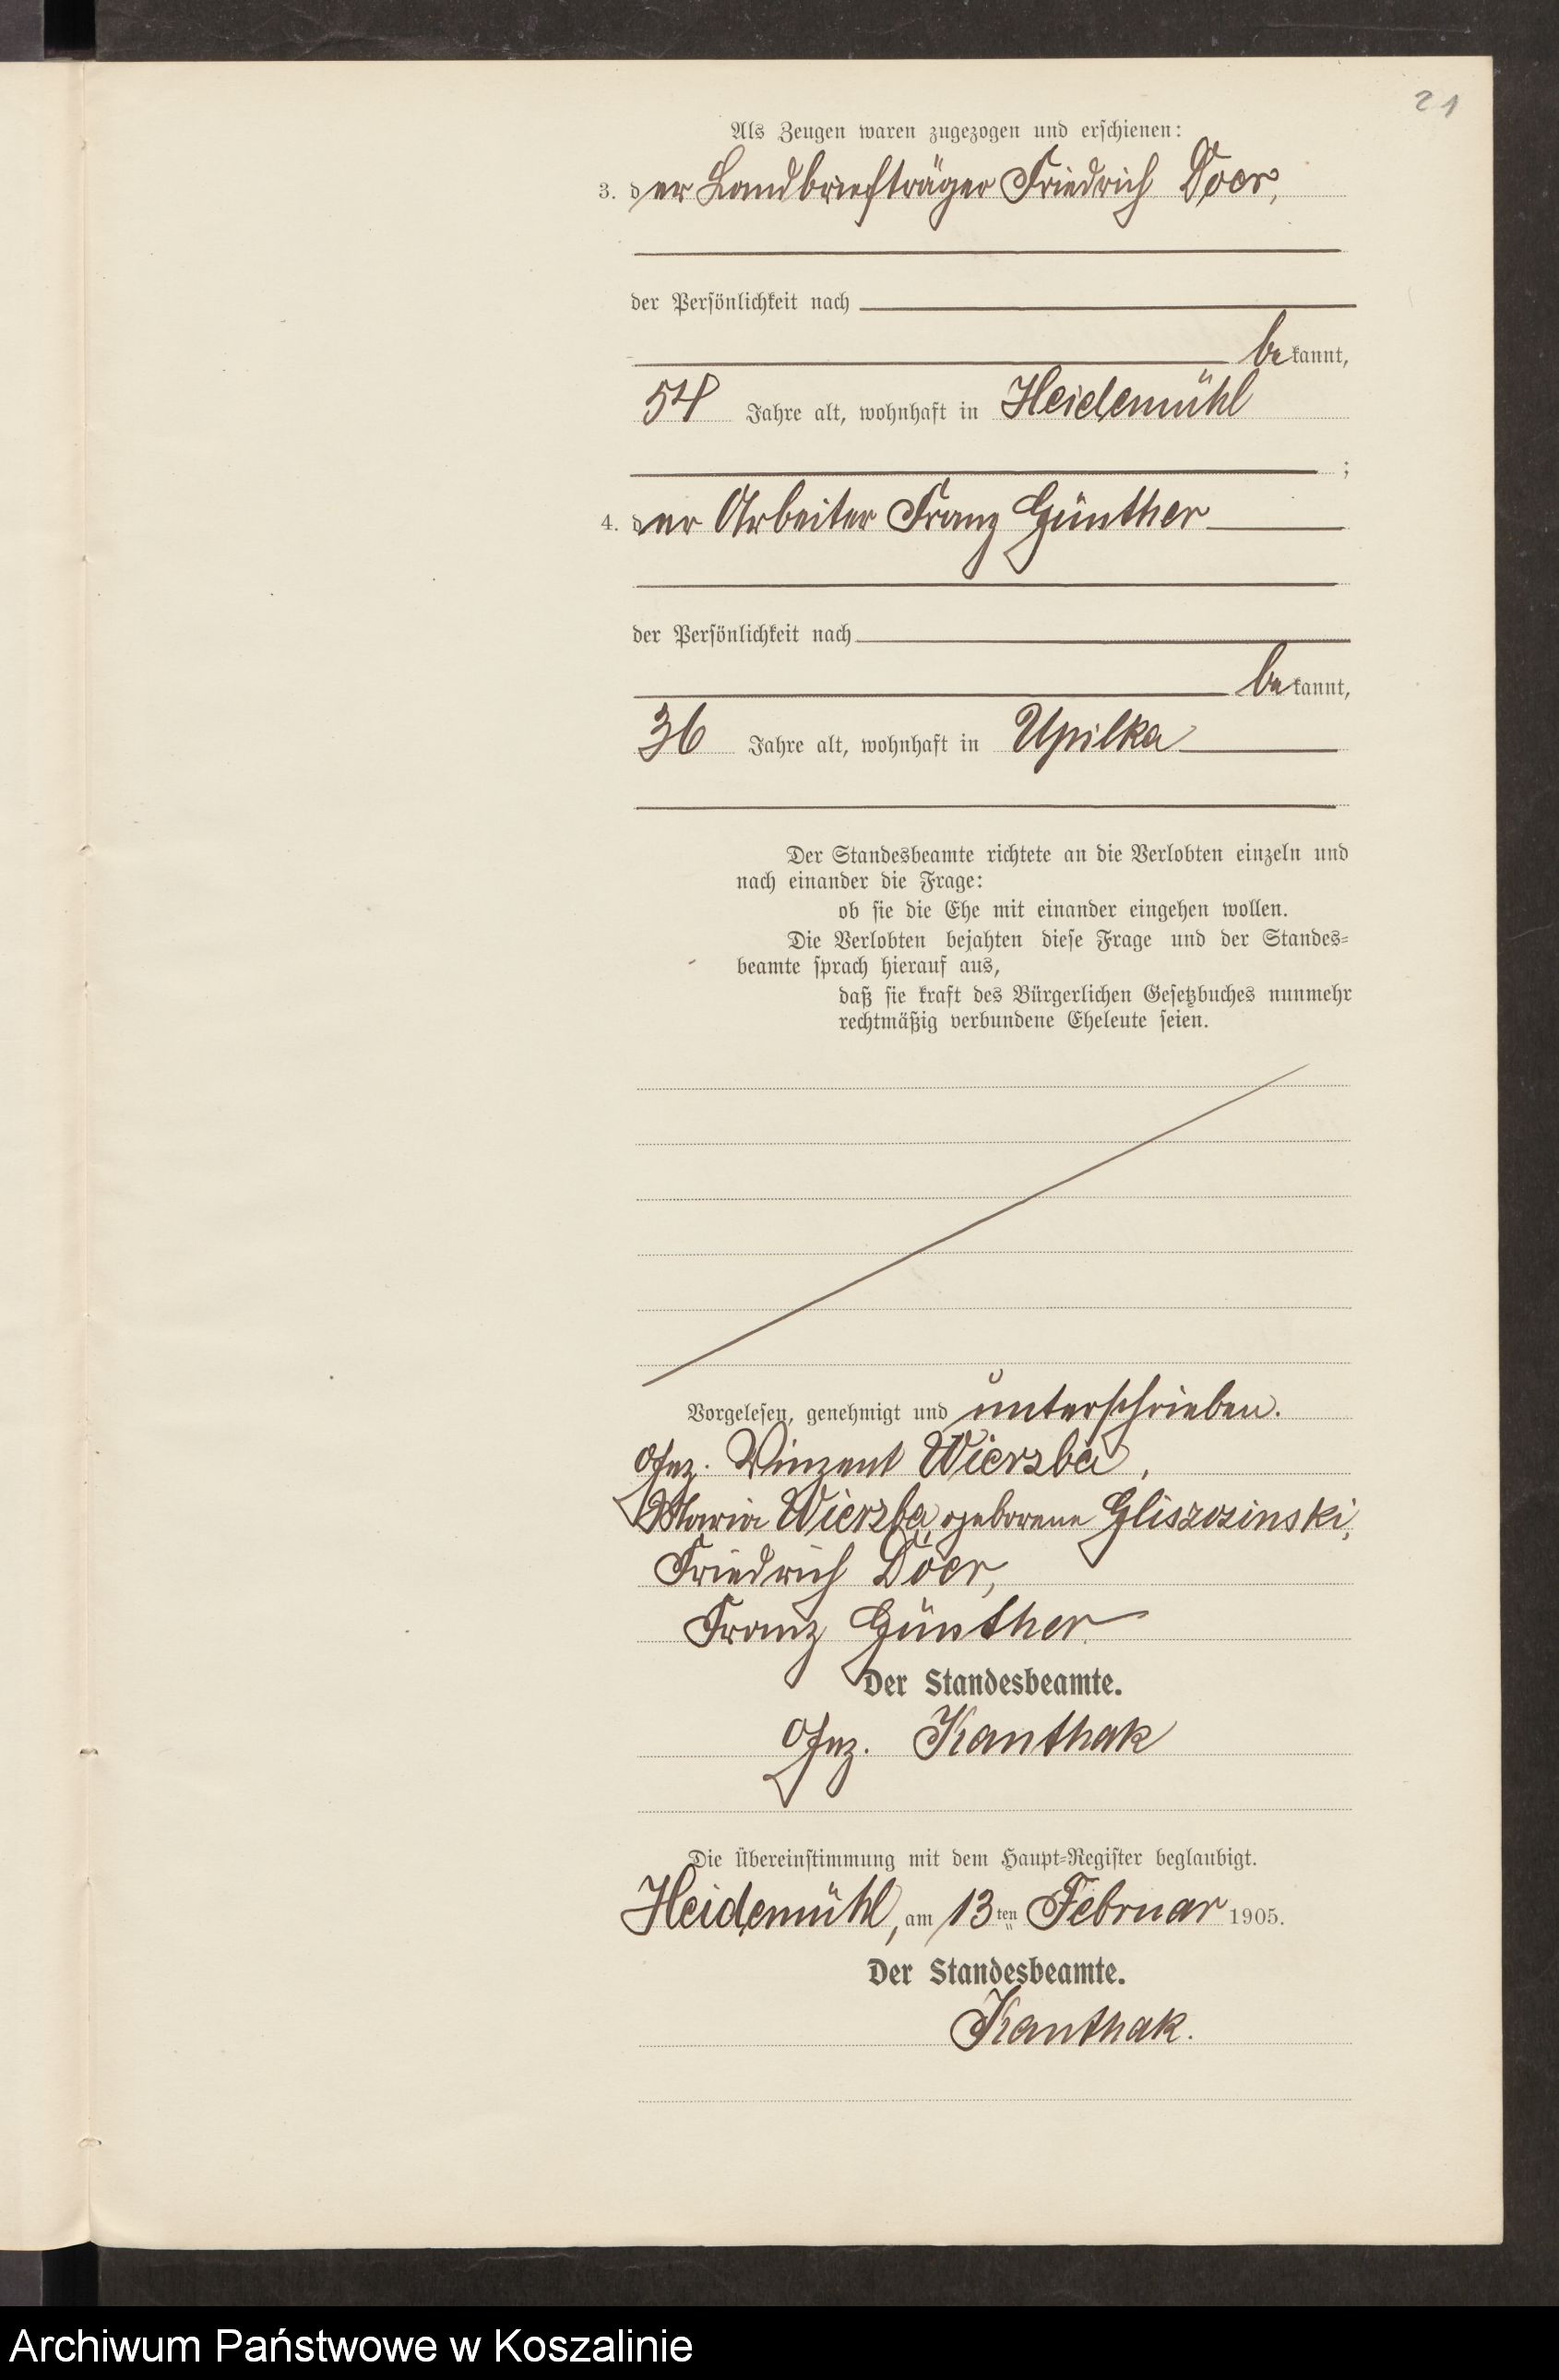 21
Als Zeugen waren zugezogen und erschienen:
3. der Landbriefträger Friedrich Doer,
der Persönlichkeit nach
bekannt,
54 Jahre alt, wohnhaft in Heidemühl
;
4. der Arbeiter Franz Günther
der Persönlichkeit nach
bekannt,
36 Jahre alt, wohnhaft in Upilka
Der Standesbeamte richtete an die Verlobten einzeln und
nach einander die Frage:
ob sie die Ehe mit einander eingehen wollen.
Die Verlobten bejahten diese Frage und der Standes-
beamte sprach hierauf aus,
daß sie kraft des Bürgerlichen Gesetzbuches nunmehr
rechtmäßig verbundene Eheleute seien.
Vorgelesen, genehmigt und unterschrieben.
Gez. Vinzent Wierzba,
Maria Wierzba, geborene Gliszczinski,
Friedrich Döer,
Franz Günther
Der Standesbeamte.
Gez. Kanthak
Die Übereinstimmung mit dem Haupt-Register beglaubigt.
Heidemühl, am 13ten Februar 1905.
Der Standesbeamte.
Kanthak.
Archiwum Państwowe w Koszalinie